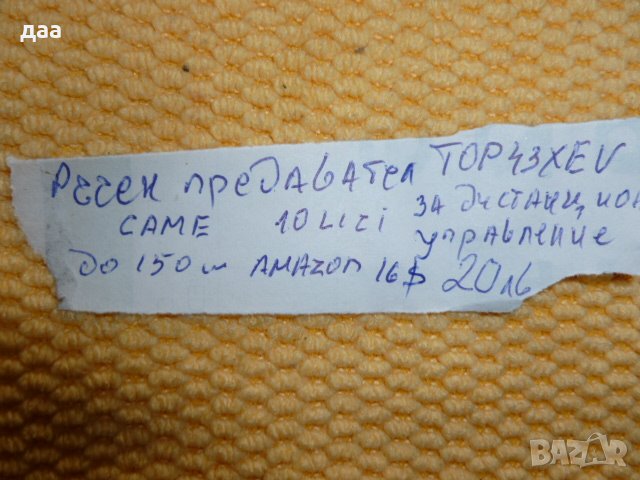 даа
Ръчен предавател TOP43XEV
CAME за дистанцион
управление
до 150 м AMAZON 16$ 20лв
BAZAR